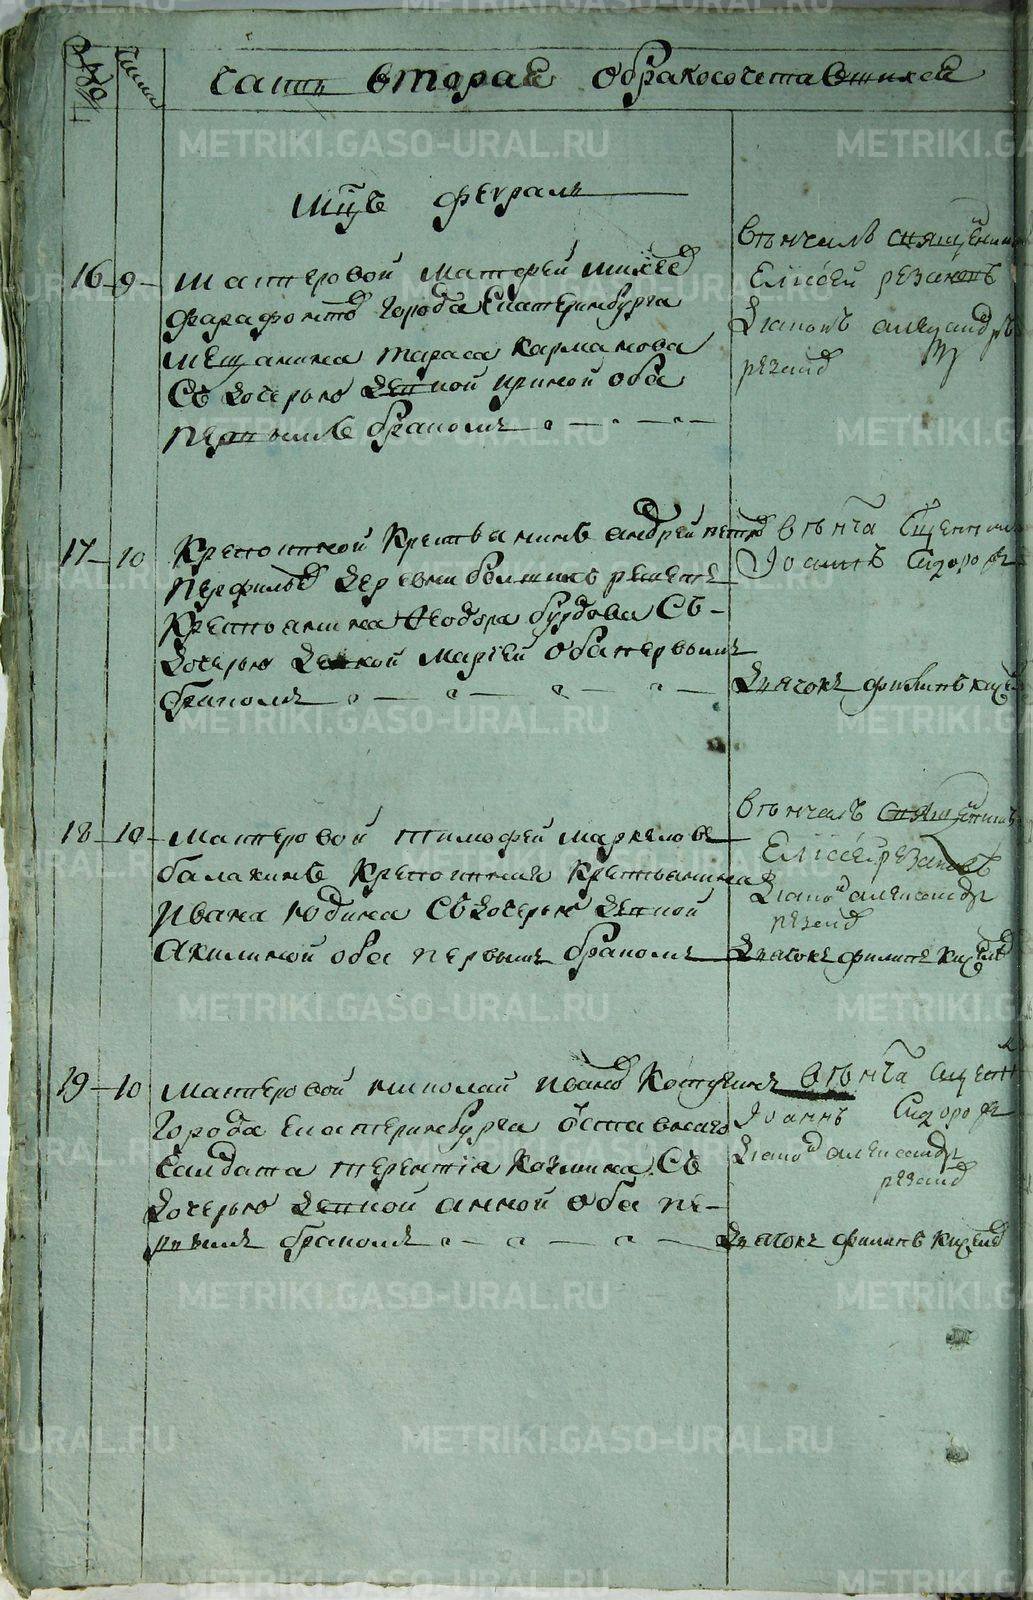 Числа
часть вторая обракосочетавшихся
Мцъ февраль
16 9 мастеровой Матфей Михее
Фарафонто города Екатеринбурга
мещанина Тараса Карманова
съ дочерью девкой Ириной оба
первымъ бракомъ
венчалъ священникъ
Елисей Резановъ
Диаконъ Александръ
Резано
17 10 Крепостной крестьянинъ Андрей Петро
Перфилье деревни
крестьянина Феодора Бурдова съ
дочерью девкой Марьей оба первымъ
бракомъ
венча сщенникъ
Иоаннъ Сидоро
Дьячокъ Филипъ
18 10 Мастеровой Тимофей Маркеловъ
Балакинъ крепостная крестьянина
Ивана Юдина съ дочерью девкой
Акилиной оба первымъ бракомъ
венчалъ священникъ
Елисей Резановъ
Диако Александр
Резано
Дьячокъ Филипъ
19 10 Мастеровой Николай Ивано
города Екатеринбурга отставнаго
салдата Терентия Козмина съ
дочерью девкой Анной оба пе-
рвымъ бракомъ
венча сщен
Иоаннъ Сидоро
Диако Александр
Резано
Дьячокъ Филипъ
METRIKI.GASO-URAL.RU